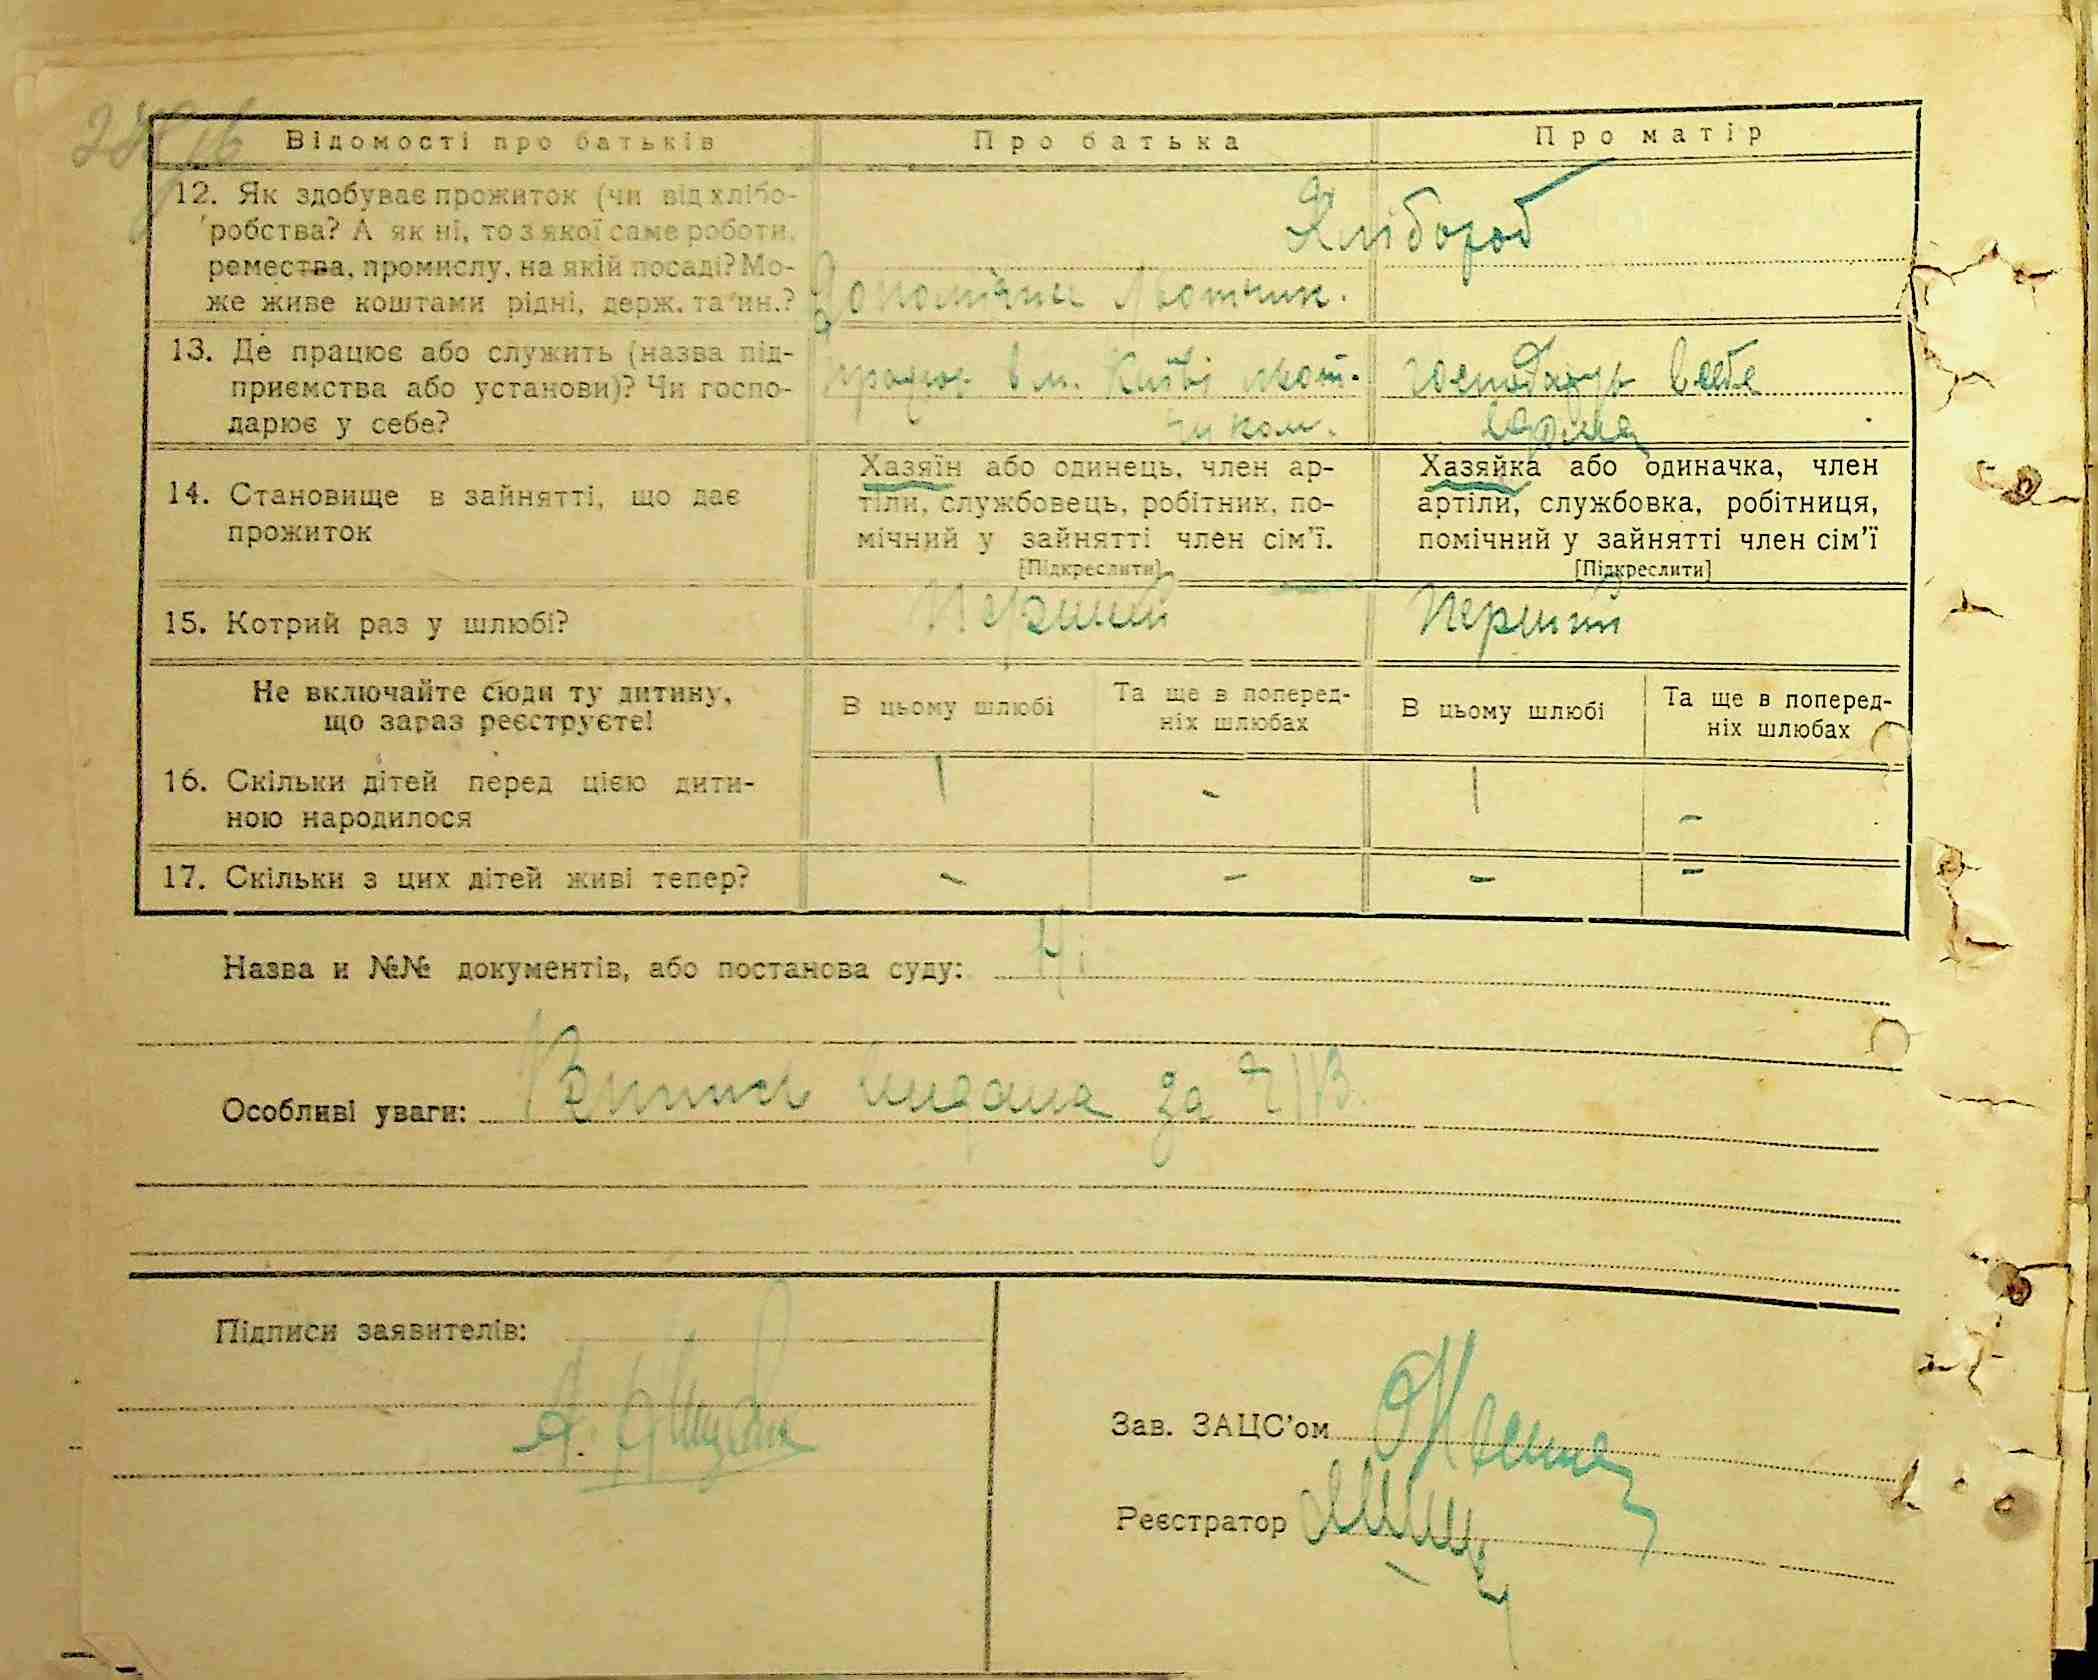 Відомості про батьків Про батька Про матір
12. Як здобуває прожиток (чи від хлібо-
робства? А як ні, то з якої саме роботи,
ремества, промислу, на якій посаді? Мо-
же живе коштами рідні, держ. та ин.?
Хлібороб
13. Де працює або служить (назва під-
приємства або установи)? Чи госпо-
дарює у себе?
працює в м. Київі
14. Становище в зайнятті, що дає
прожиток
Хазяїн або одинець, член ар-
тіли, службовець, робітник, по-
мічний у зайнятті член сім'ї.
[Підкреслити]
Хазяйка або одиначка, член
артіли, службовка, робітниця,
помічний у зайнятті член сім'ї
[Підкреслити]
15. Котрий раз у шлюбі? Перший Перший
Не включайте сюди ту дитину,
що зараз реєструєте!
В цьому шлюбі
Та ще в поперед-
ніх шлюбах
В цьому шлюбі
Та ще в поперед-
ніх шлюбах
16. Скільки дітей перед цією дити-
ною народилося
1 - 1 -
17. Скільки з цих дітей живі тепер?
- - - -
Назва и №№ документів, або постанова суду: Ні
Особливі уваги: Випись видана за
Підписи заявителів:
Зав. ЗАЦС'ом
Реєстратор